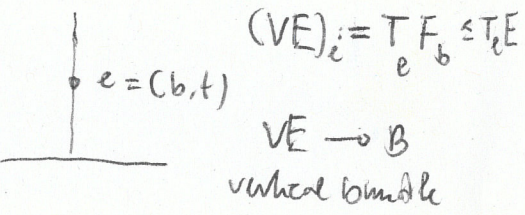 (VE)_e := T_e F_b ≤ T_e E
e = (b,t)
VE → B
vertical bundle